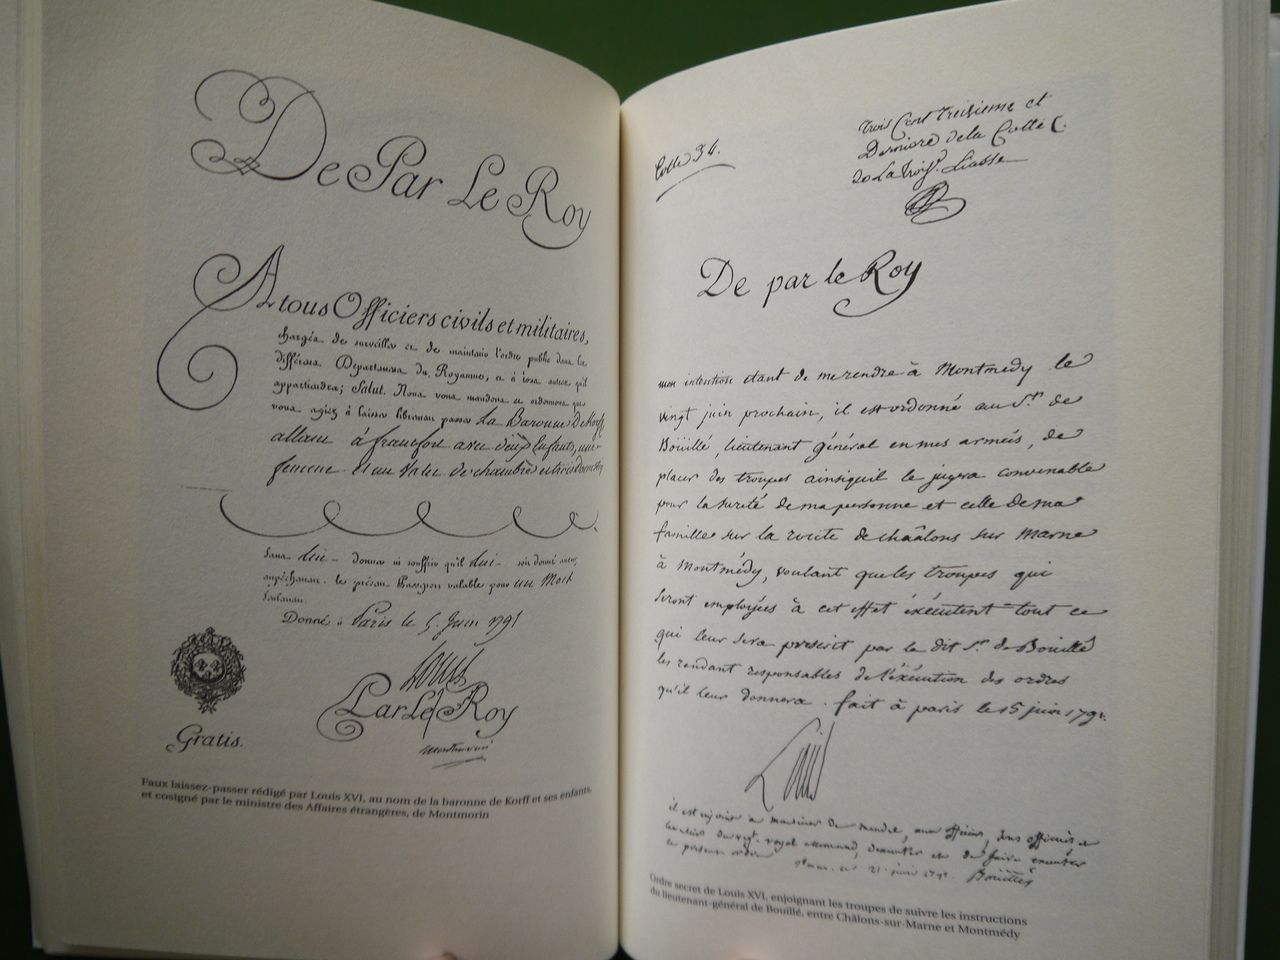 De Par Le Roy
A tous Officiers civils et militaires,
chargés de surveiller et de maintenir l'ordre public dans les
différens Départemens du Royaume, et à tous autres qu'il
appartiendra; Salut. Nous vous mandons et ordonnons que
vous ayiez à laisser librement passer La Baronne De Korff
allant à francfort avec deux Enfants, une
femme et un Valet de chambre et trois domestiq
Sans lui donner ni souffrir qu'il lui soit donné aucun
empêchement. le présent Passeport valable pour un Mois
Seulement.
Donné à Paris le 5 Juin 1791
Louis
Par Le Roy
Montmorin
Gratis.
Faux laissez-passer rédigé par Louis XVI, au nom de la baronne de Korff et ses enfants,
et cosigné par le ministre des Affaires étrangères, de Montmorin
Cotte 34.
trois Cent treizieme et
Derniere de la Cotte C.
De La trois.e Liasse
De par le Roy
mon intention étant de me rendre à Montmédy le
vingt juin prochain, il est ordonné au Sr. de
Boüillé, lieutenant général en mes armées, de
placer des troupes ainsi quil le jugera convenable
pour la sureté de ma personne et celle de ma
famille sur la route de chaâlons sur Marne
à Montmédy, voulant que les troupes qui
seront employées à cet effet éxécutent tout ce
qui leur sera prescrit par le dit Sr. de Bouillé
les rendant responsables de l'éxécution des ordres
qu'il leur donnera. fait à paris le 15 juin 1791.
Louis
il est enjoint a monsieur De mandel, aux officiers, sous officiers et
cavaliers du regt. royal allemand, d'executer et de faire executer
le present ordre
21 juin 1791 Bouillé
Ordre secret de Louis XVI, enjoignant les troupes de suivre les instructions
du lieutenant-général de Bouillé, entre Châlons-sur-Marne et Montmédy